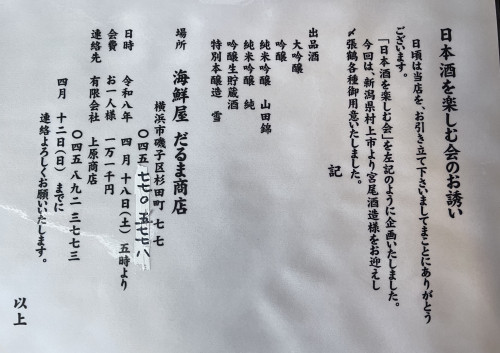 日本酒を楽しむ会のお誘い
日頃は当店を、お引き立て下さいましてまことにありがとう
ございます。
「日本酒を楽しむ会」を左記のように企画いたしました。
今回は、新潟県村上市より宮尾酒造様をお迎えし
〆張鶴各種御用意いたしました。
記
出品酒
大吟醸
吟醸
純米吟醸 山田錦
純米吟醸 純
吟醸生貯蔵酒
特別本醸造 雪
場所 海鮮屋 だるま商店
横浜市磯子区杉田町 七 七
〇四五 七七〇 五七七八
日時 令和八年 四月 十八日(土) 五時より
会費 お一人様 一万一千円
連絡先 有限会社 上原商店
〇四五 八九二 三七七三
四月 十二日(日) までに
連絡よろしくお願いいたします。
以上